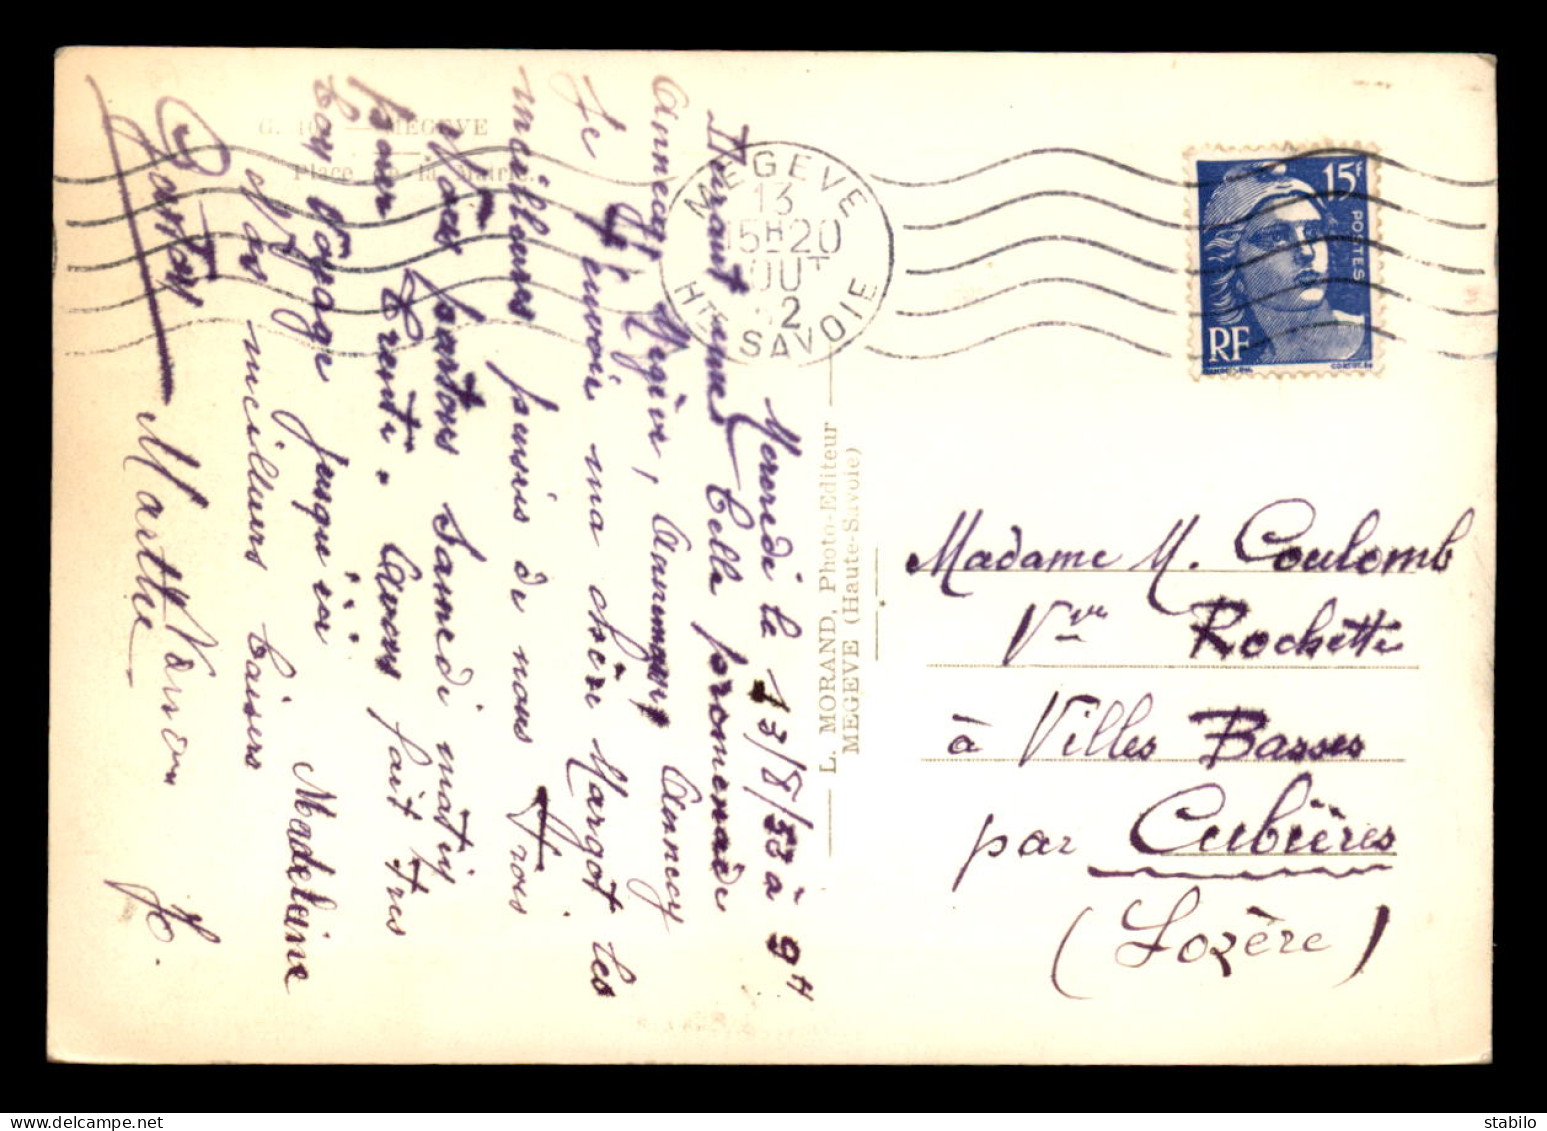 G. 10 — MEGÈVE
Place de la Mairie.
MEGEVE
13
15H20
OUT
2
HTE SAVOIE
15F
POSTES
RF
L. MORAND, Photo-Editeur
MEGEVE (Haute-Savoie)
Mercredi le 13/8/52 à 9H
Durant une belle promenade
Annecy Megève, Annemasse Annecy
Je t'envoie ma chère Margot les
meilleures pensées de nous trois
Nous partons Samedi matin
pour Trente. Avons fait très
bon voyage jusqu'ici
Nos meilleurs baisers
Madeleine
Gaston
Marthe
Madame M. Coulomb
Vve Rochette
à Villes Basses
par Cubières
(Lozère)
stabilo